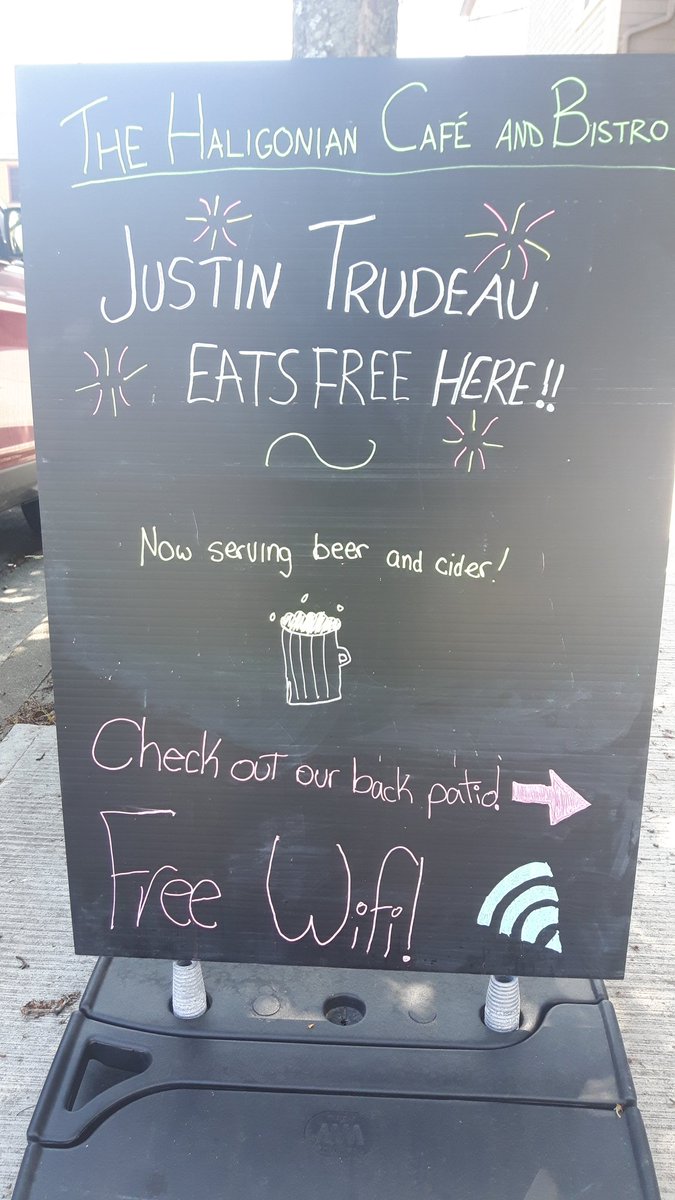 THE HALIGONIAN CAFÉ AND BISTRO
JUSTIN TRUDEAU
EATS FREE HERE!!
Now serving beer and cider!
Check out our back patio!
Free Wifi!